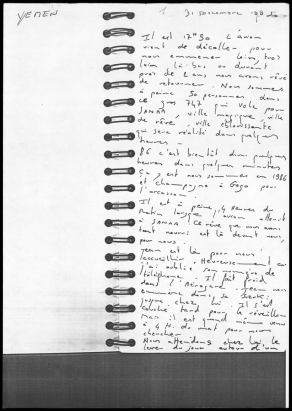 YEMEN
1
31 décembre 1985
Il est 17h30 L'avion
vient de décoller pour
nous emmener loin, très
loin là-bas où durant
près de 2 ans nous avons rêvé
de retourner. Nous sommes
à peine 30 personnes dans
ce gros 747 qui vole pour
SANAA, ville magique, ville
de rêve, ville éblouissante
qui sera réalité dans quelques
heures -
86 c'est bientôt dans quelques
heures dans quelques minutes
Ça y est nous sommes en 1986
et champagne à gogo pour
l'occasion.
Il est à peine 4 heures du
matin lorsque l'avion atterrit
à SANAA Ce rêve que nous avons
tant nourri est là devant nous,
pour nous.
Jean est là pour nous
accueillir. Heureusement car
j'ai oublié son numéro de
téléphone. Il fait froid
dans l'aérogare. Jean nous
emmène dans sa
jusque chez lui Il s'est
couché tard pour le réveillon
mais il est quand même venu
à 4 H. du mat pour nous
chercher
Nous attendons chez lui le
lever du jour autour d'un